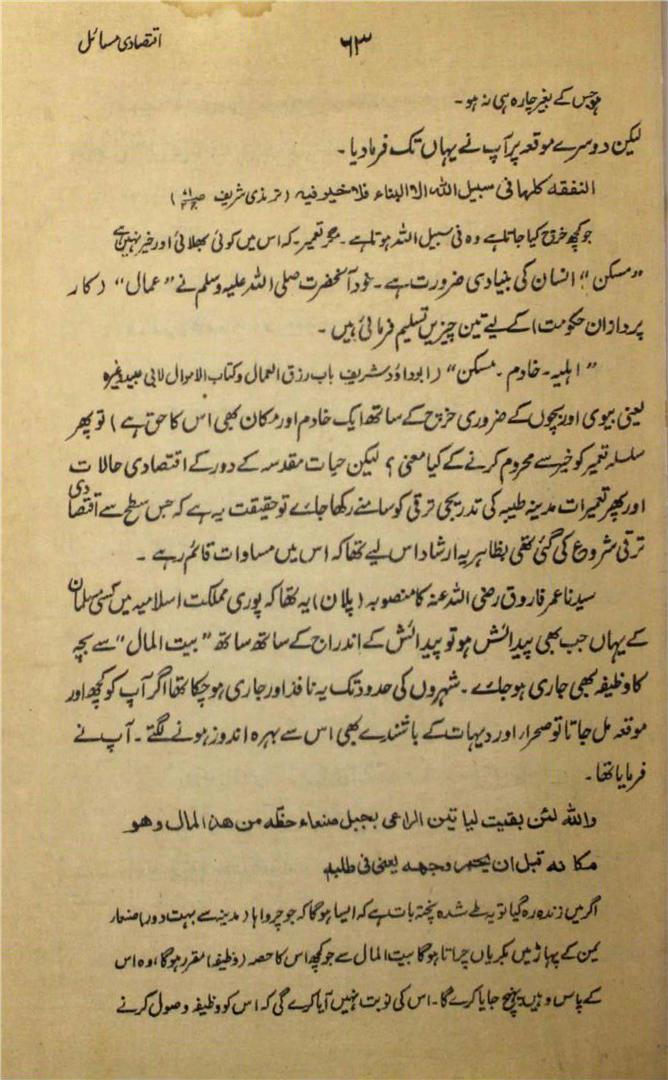 اقتصادی مسائل
۶۳
ہو جس کے بغیر چارہ ہی نہ ہو۔
لیکن دوسرے موقعہ پر آپ نے یہاں تک فرما دیا۔
النفقه كلها فى سبيل الله الا البناء فلا خير فيه (ترمذی شریف
جو کچھ خرچ کیا جاتا ہے وہ فی سبیل اللہ ہوتا ہے۔ مگر تعمیر۔ کہ اس میں کوئی بھلائی اور خیر نہیں ہے
"مسکن" انسان کی بنیادی ضرورت ہے۔ خود آنحضرت صلی اللہ علیہ وسلم نے "عمال" (کار
پردازان حکومت) کے لیے تین چیزیں تسلیم فرمائی ہیں۔
"اہلیہ۔ خادم۔ مسکن" (ابوداؤد شریف باب رزق العمال و کتاب الاموال لابی عبید وغیرہ
یعنی بیوی اور بچوں کے ضروری خرچ کے ساتھ ایک خادم اور مکان بھی اس کا حق ہے) تو پھر
سلسلہ تعمیر کو خیر سے محروم کرنے کے کیا معنی؟ لیکن حیات مقدسہ کے دور کے اقتصادی حالات
اور پھر تعمیرات مدینہ طیبہ کی تدریجی ترقی کو سامنے رکھا جائے تو حقیقت یہ ہے کہ جس سطح سے اقتصادی
ترقی شروع کی گئی تھی بظاہر یہ ارشاد اس لیے تھا کہ اس میں مساوات قائم رہے۔
سیدنا عمر فاروق رضی اللہ عنہ کا منصوبہ (پلان) یہ تھا کہ پوری مملکت اسلامیہ میں کسی مسلمان
کے یہاں جب بھی پیدائش ہو تو پیدائش کے اندراج کے ساتھ ساتھ "بیت المال" سے بچہ
کا وظیفہ بھی جاری ہو جائے۔ شہروں کی حدود تک یہ نافذ اور جاری ہو چکا تھا اگر آپ کو کچھ اور
موقعہ مل جاتا تو صحراء اور دیہات کے باشندے بھی اس سے بہرہ اندوز ہونے لگتے۔ آپ نے
فرمایا تھا۔
والله لئن بقيت لياتين الراعى بجبل صنعاء حظه من هذا المال وهو
مكانه قبل ان يحمر وجهه يعنى فى طلبه
اگر میں زندہ رہ گیا تو یہ طے شدہ پختہ بات ہے کہ ایسا ہوگا کہ جو چرواہا (مدینہ سے بہت دور) صنعاء
یمن کے پہاڑ میں بکریاں چراتا ہوگا بیت المال سے جو کچھ اس کا حصہ (وظیفہ) مقرر ہوگا، وہ اس
کے پاس وہیں پہنچ جایا کرے گا۔ اس کی نوبت نہیں آیا کرے گی کہ اس کو وظیفہ وصول کرنے